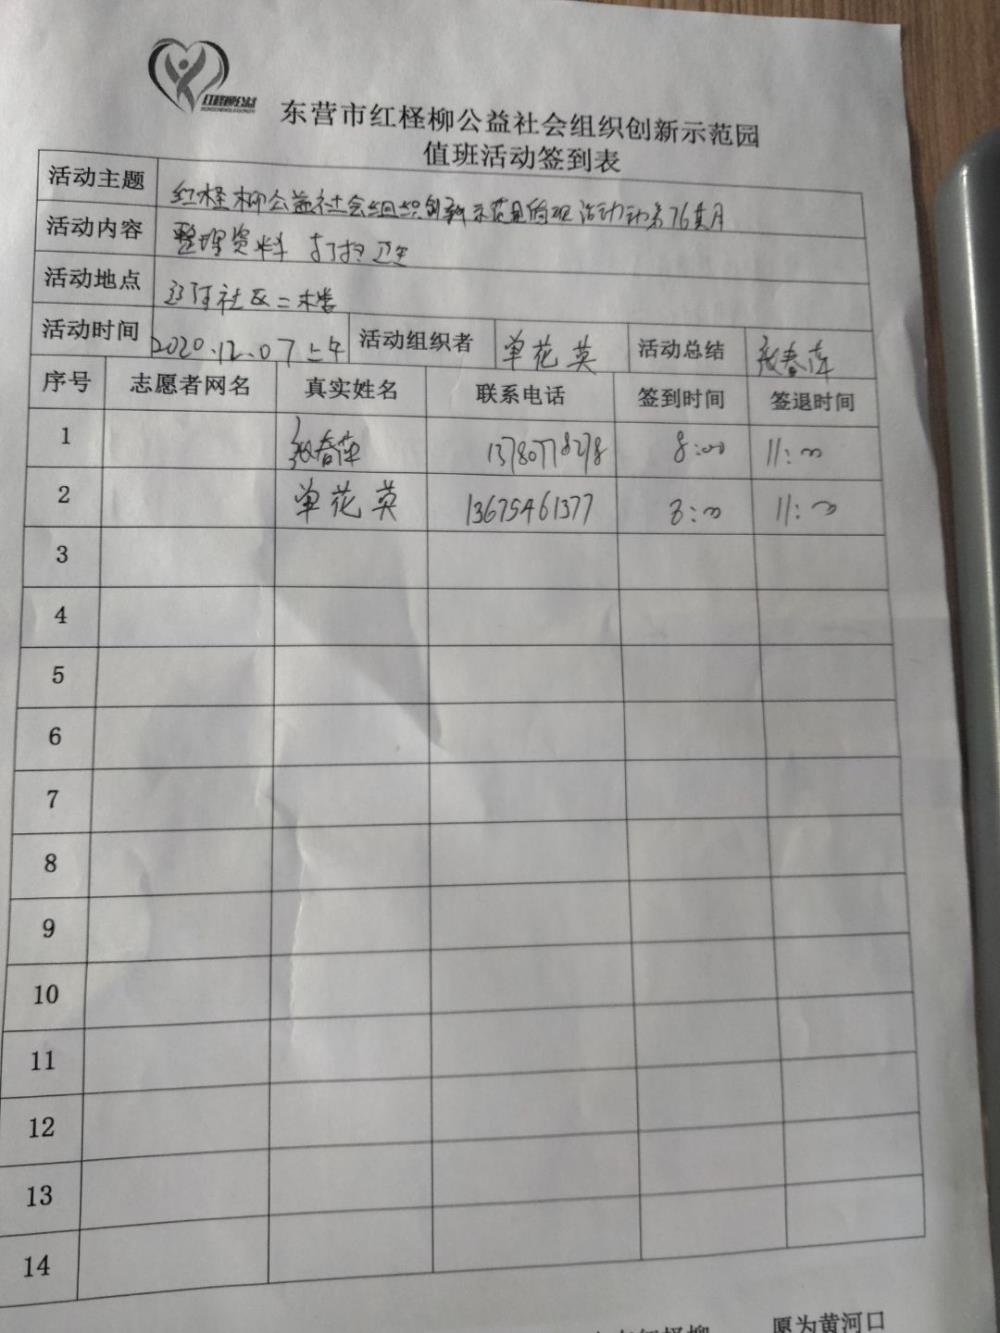 东营市红柽柳公益社会组织创新示范园
值班活动签到表
活动主题 红柽柳公益社会组织创新示范园值班活动第76期
活动内容 整理资料 打扫卫生
活动地点 社区二楼
活动时间 2020.12.07上午 活动组织者 单花英 活动总结 张春萍
序号 志愿者网名 真实姓名 联系电话 签到时间 签退时间
1 张春萍 13780778278 8:00 11:00
2 单花英 13675461377 8:00 11:00
3
4
5
6
7
8
9
10
11
12
13
14
愿为黄河口